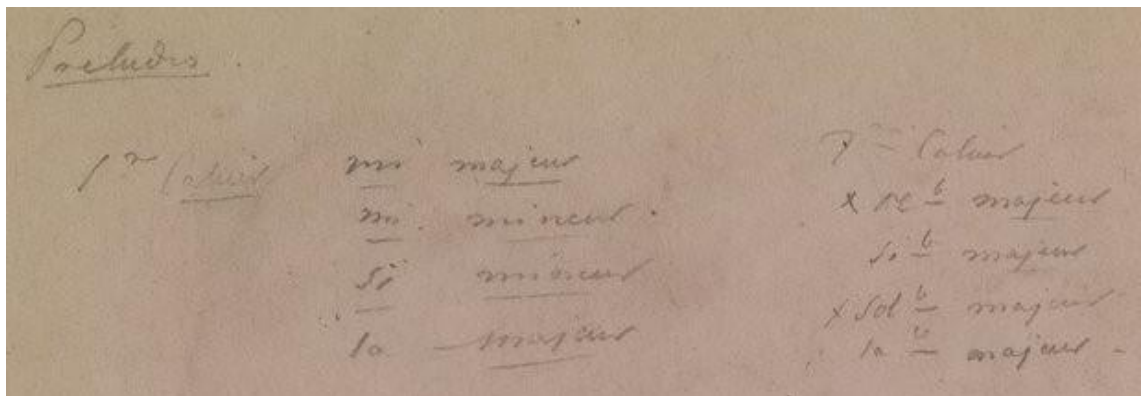 Préludes.
1er Cahier mi majeur
mi mineur.
si mineur
la majeur
Cahier
x re b majeur
si b majeur
x sol b majeur
la b majeur